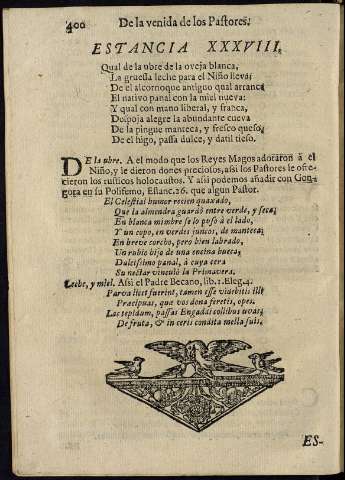 400 De la venida de los Pastores.
ESTANCIA XXXVIII.
Qual de la vbre de la oveja blanca,
La gruessa leche para el Niño lleva;
De el alcornoque antiguo qual arranca
El nativo panal con la miel nueva:
Y qual con mano liberal, y franca,
Despoja alegre la abundante cueva
De la pingue manteca, y fresco queso;
De el higo, passa dulce, y datil tieso.
DE la ubre. A el modo que los Reyes Magos adoraron à el
Niño, y le dieron dones preciosos, assi los Pastores le ofre-
cieron los rusticos holocaustos. Y assi podemos añadir con Gon-
gora en su Polifemo, Estanc. 26. que algun Pastor.
El Celestial humor recien quaxado,
Que la almendra guardò entre verde, y seca;
En blanca mimbre se lo puso à el lado,
Y un copo, en verdes juncos, de manteca;
En breve corcho, pero bien labrado,
Un rubio hijo de una encina hueca;
Dulcissimo panal, à cuya cera
Su nectar vinculò la Primavera.
Leche, y miel. Assi el Padre Becano, lib. 1. Eleg. 4.
Parva licet fuerint, tamen esse videbitis illi
Praecipuas, quae vos dona feretis, opes.
Lac tepidum, passas Engadai collibus uvas;
De fruta, & in ceris condita mella suis.
ES-